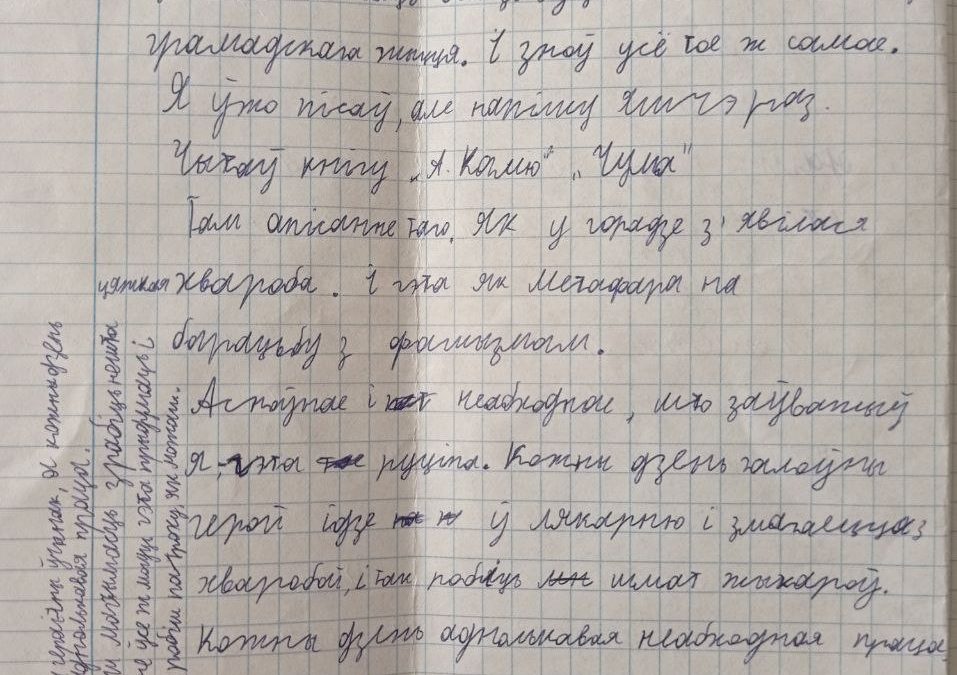 грамадскага жыцця. І зноў усё тое ж самае.
Я ўжо пісаў, але напішу яшчэ раз.
Чытаў кнігу „А. Камю" „Чума"
Там апісанне таго, як у горадзе з'явілася
цяжкая хвароба. І гэта як метафара на
барацьбу з фашызмам.
Асноўнае і неабходнае, што заўважыў
я, гэта руціна. Кожны дзень галоўны
герой ідзе ў лякарню і змагаецца з
хваробай, і так робіць шмат жыхароў.
Кожны дзень аднолькавая неабходная праца.
кожны дзень
аднолькавая праца.
магчымасць зрабіць нешта
усё ж могуць гэта прыдумаць і
робім па троху, як можам.